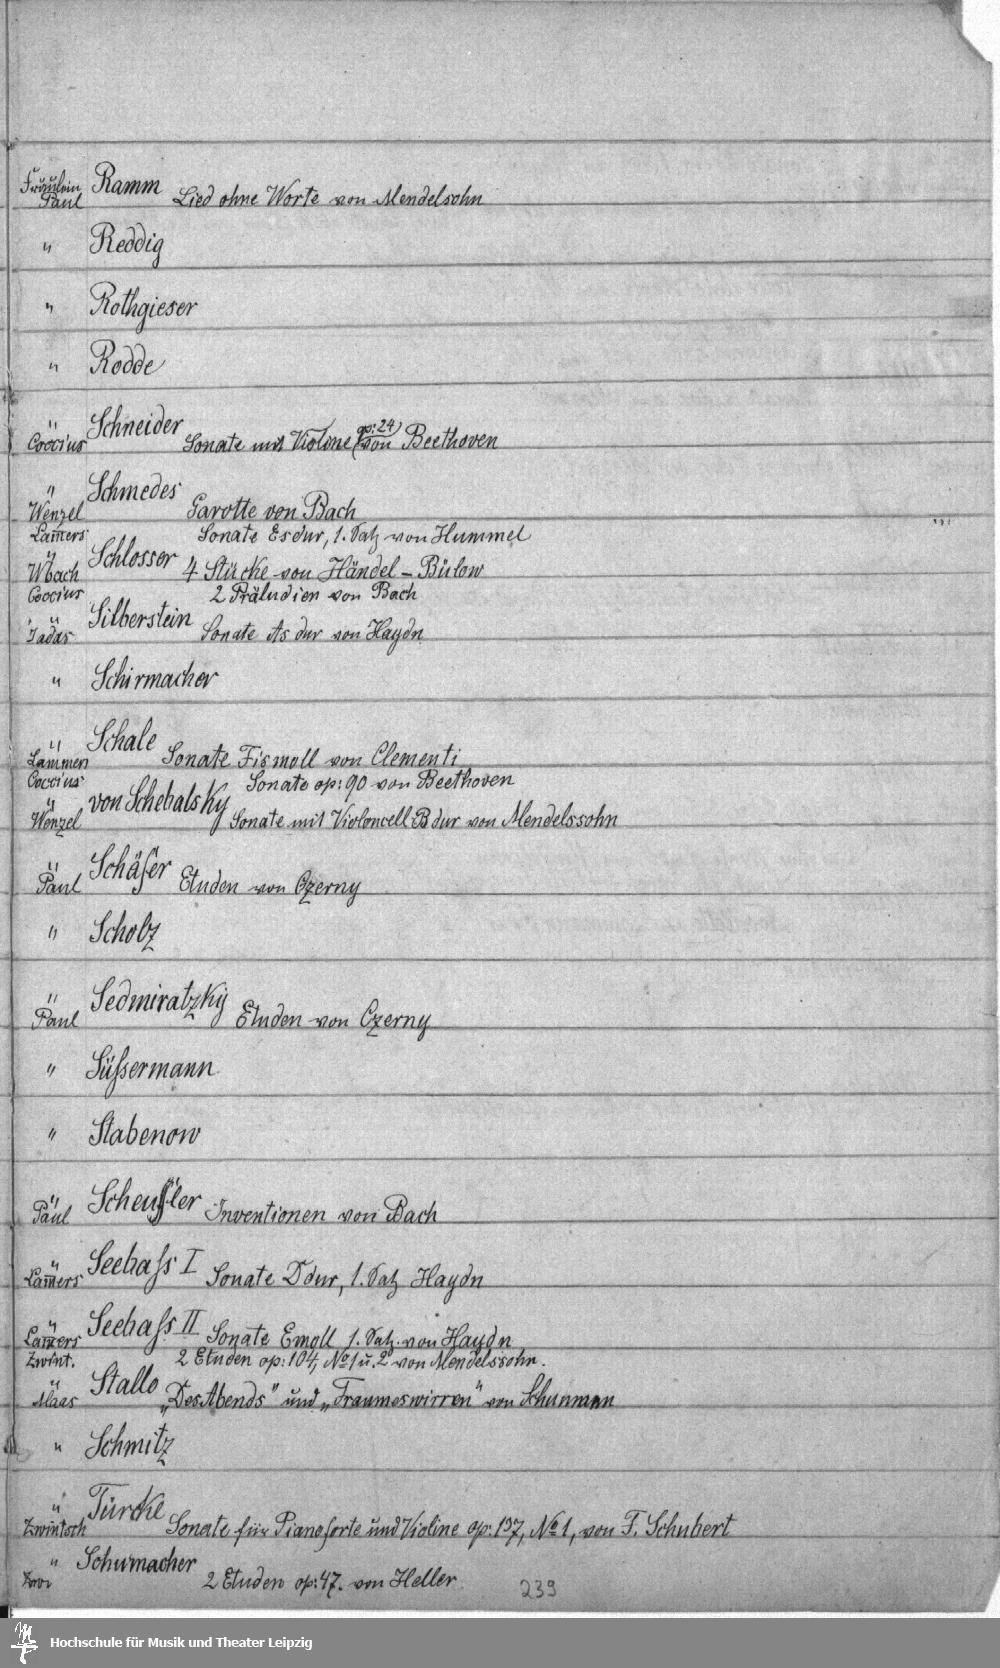 Fräulein Ramm
Paul Lied ohne Worte von Mendelsohn
" Reddig
" Rothgieser
" Rodde
" Schneider
Coccius Sonate mit Violine (op: 24) von Beethoven
" Schmedes
Wenzel Gavotte von Bach
Lam̅ers Sonate Esdur, 1. Satz von Hummel
" Schlosser
Wbach 4 Stücke von Händel - Bülow
Coccius 2 Präludien von Bach
" Silberstein
Jadas. Sonate As dur von Haydn
" Schirmacher
" Schale
Lammers Sonate Fis moll von Clementi
Coccius Sonate op: 90 von Beethoven
" von Schebalsky
Wenzel Sonate mit Violoncell B dur von Mendelssohn
" Schäfer
Paul Etuden von Czerny
" Scholz
" Sedmiratzky
Paul Etuden von Czerny
" Süssermann
" Stabenow
" Scheussler
Paul Inventionen von Bach
" Seebass I
Lam̅ers Sonate D dur, 1. Satz Haydn
" Seebass II
Lam̅ers Sonate Emoll 1. Satz von Haydn
Zwint. 2 Etuden op: 104, No 1 u. 2 von Mendelssohn.
" Stallo
Maas „Des Abends" und „Traumeswirren" von Schumann
" Schmitz
" Türcke
Zwintsch Sonate für Pianoforte und Violine op: 137, No 1, von F. Schubert
" Schumacher
2 Etuden op: 47. von Heller
239
Hochschule für Musik und Theater Leipzig